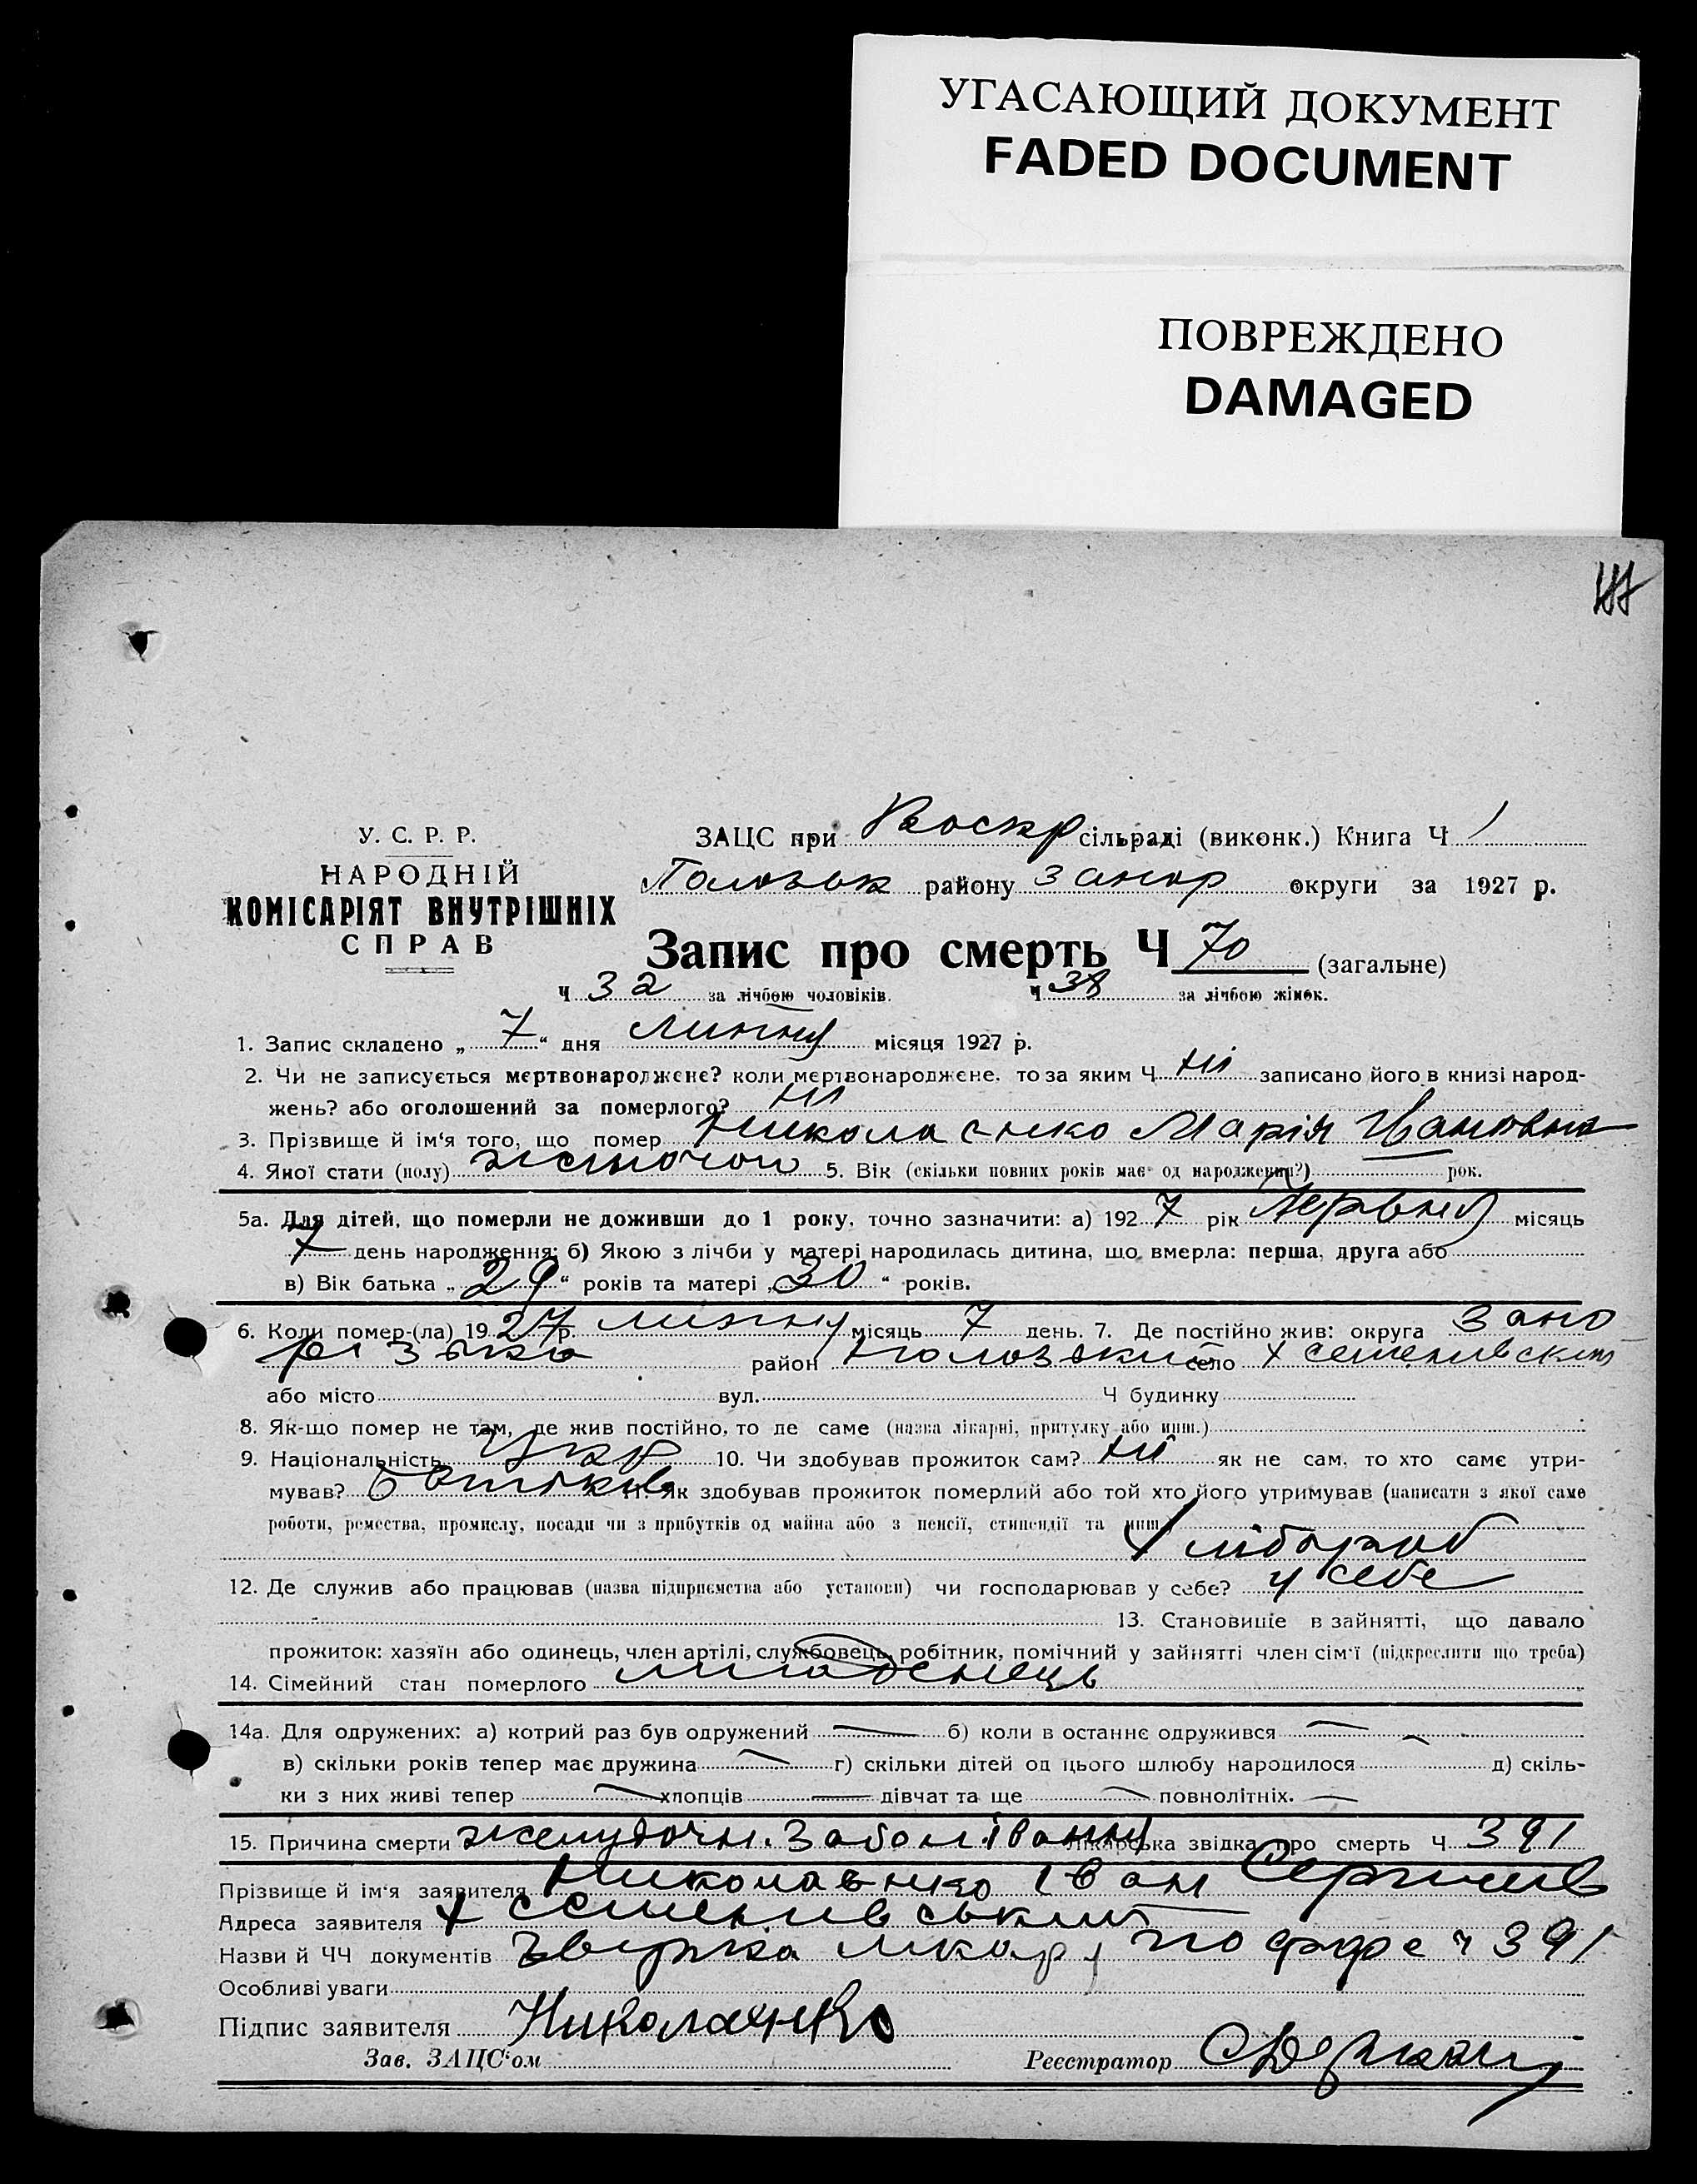 УГАСАЮЩИЙ ДОКУМЕНТ
FADED DOCUMENT
ПОВРЕЖДЕНО
DAMAGED
У. С. Р. Р.
НАРОДНІЙ
КОМІСАРІЯТ ВНУТРІШНІХ
СПРАВ
ЗАЦС при Воскр сільраді (виконк.) Книга Ч 1
Пологськ району Запор округи за 1927 р.
Запис про смерть Ч 70 (загальне)
Ч 32 за лічбою чоловіків. Ч 38 за лічбою жінок.
1. Запис складено „ 7 “ дня липня місяця 1927 р.
2. Чи не записується мертвонароджене? коли мертвонароджене, то за яким Ч Ні записано його в книзі народ-
жень? або оголошений за померлого? Ні
3. Прізвище й ім'я того, що помер Николаенко Марія Ивановна
4. Якої стати (полу) жіночої 5. Вік (скільки повних років має од народження?) рок.
5а. Для дітей, що померли не доживши до 1 року, точно зазначити: а) 192 7 рік Червня місяць
7 день народження; б) Якою з лічби у матері народилась дитина, що вмерла: перша, друга або
в) Вік батька „ 29 “ років та матері „ 30 “ років.
6. Коли помер-(ла) 19 27 р. липня місяць 7 день. 7. Де постійно жив: округа Запо
різька район Пологзький село Х Семенивский
або місто вул. Ч будинку
8. Як-що помер не там, де жив постійно, то де саме (назва лікарні, притулку або инш.)
9. Національність Укр 10. Чи здобував прожиток сам? Ні як не сам, то хто саме утри-
мував? батьків 11. Як здобував прожиток померлий або той хто його утримував (написати з якої саме
роботи, ремества, промислу, посади чи з прибутків од майна або з пенсії, стипендії та инш.)
Хлібороб
12. Де служив або працював (назва підприємства або установи) чи господарював у себе? у себе
13. Становище в зайнятті, що давало
прожиток: хазяїн або одинець, член артілі, службовець, робітник, помічний у зайнятті член сім'ї (підкреслити що треба)
14. Сімейний стан померлого младенець
14а. Для одружених: а) котрий раз був одружений б) коли в останнє одружився
в) скільки років тепер має дружина г) скільки дітей од цього шлюбу народилося д) скіль-
ки з них живі тепер хлопців дівчат та ще повнолітніх.
15. Причина смерти желудочн. Лікарська звідка про смерть Ч 391
Прізвище й ім'я заявителя Николаенко Іван
Адреса заявителя Х Семенивський
Назви й ЧЧ документів лікар ч 391
Особливі уваги
Підпис заявителя Николаенко
Зав. ЗАЦС'ом Реєстратор